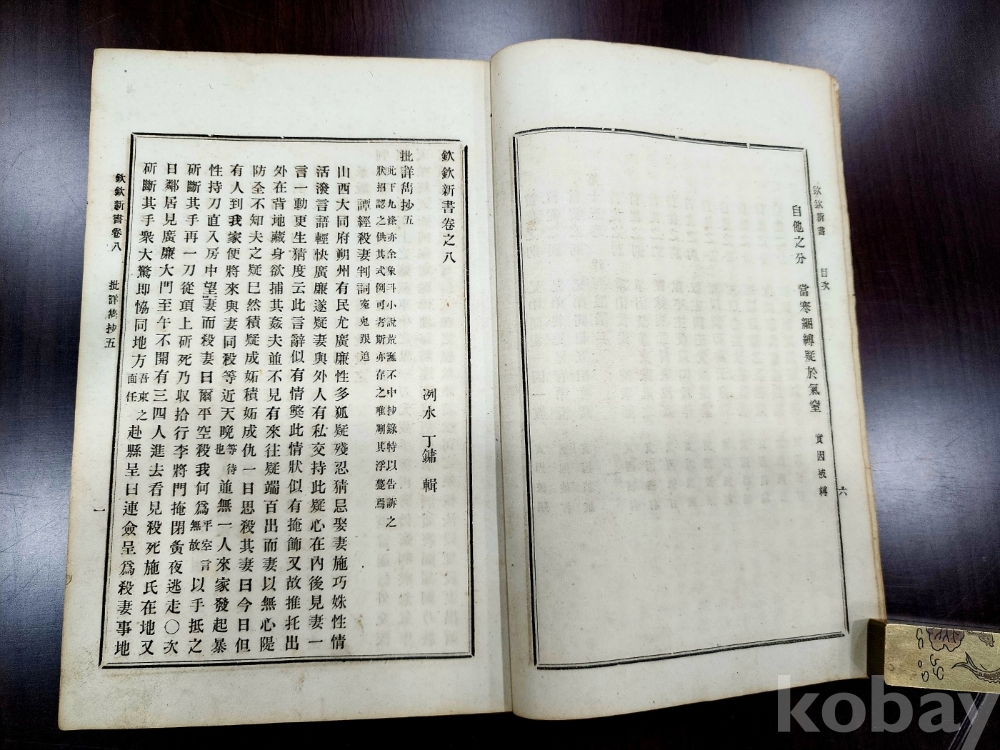 欽欽新書
目次
六
自他之分
當寒綑縛疑於氣窒
實因被縛
欽欽新書卷之八
洌水 丁鏞 輯
批詳雋抄五
此下九條亦余象斗小說荒誕不中抄錄特以告訴之
狀招認之供其式例可考斯亦存之唯刪其浮蔓焉
譚經殺妻判詞
冤鬼跟追
山西大同府朔州有民尤廣廉性多狐疑殘忍猜忌娶妻施巧姝性情
活潑言語輕快廣廉遂疑妻與外人有私交持此疑心在內後見妻一
言一動更生猜度云此言辭似有情弊此情狀似有掩飾又故推托出
外在背地藏身欲捕其姦夫並不見有來往疑端百出而妻以無心隄
防全不知夫之疑已然積疑成妬積妬成仇一日思殺其妻曰今日但
有人到我家便將來與妻同殺等近天晚等待也並無一人來家發起暴
性持刀直入房中望妻而殺妻曰爾平空殺我何爲平空言無故以手抵之
斫斷其手再一刀從項上斫死乃收拾行李將門掩閉黃夜逃走〇次
日鄰居見廣廉大門至午不開有三四人進去看見殺死施氏在地又
斫斷其手衆大驚即恊同地方吾東之面任赴縣呈曰連僉呈爲殺妻事地
欽欽新書卷八
批詳雋抄五
一
kobay